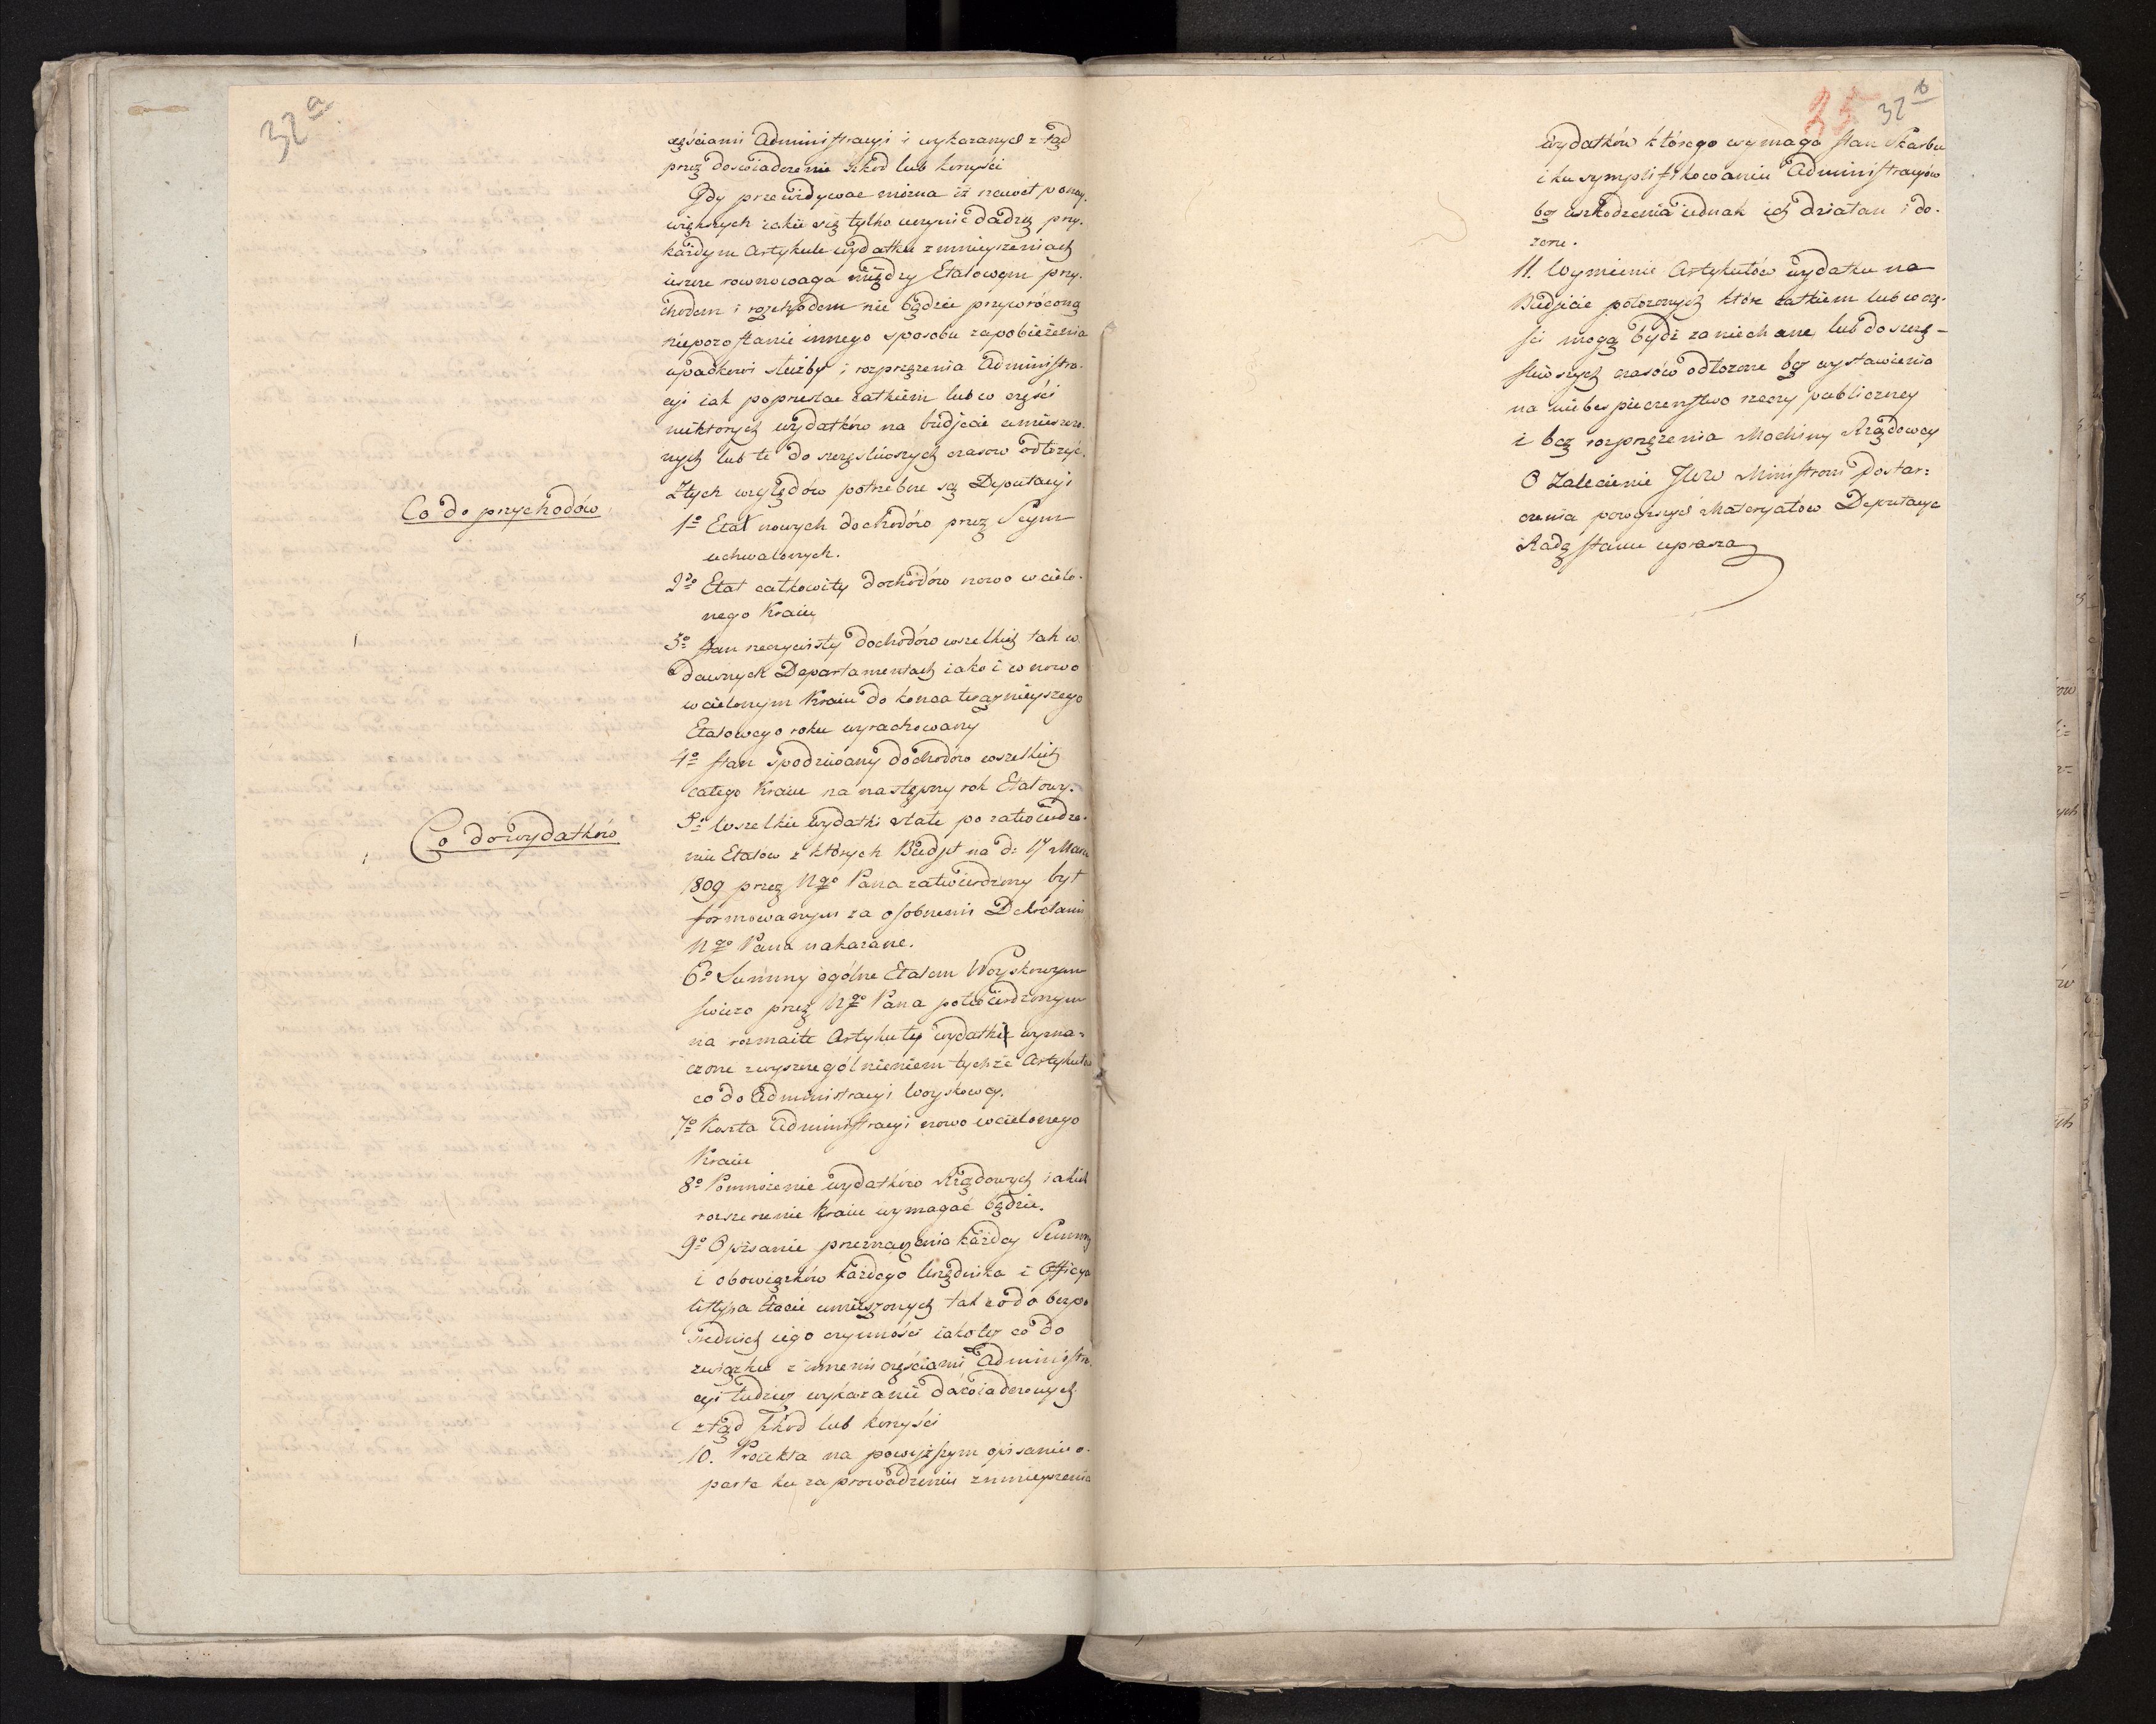 32 a
częściami Administracyi i wykazanych ztąd
przez doświadczenie szkod lub korzyści
Gdy przewidywać można iż nawet po nay-
większych iakie się tylko uczynić dadzą przy-
każdym Artykule wydatku zmnieyszeniach
ieszcze rownowaga między Etatowym przy-
chodem i rozchodem nie będzie przywróconą
niepozostanie innego sposobu zapobieżenia
upadkowi służby i rozprzężenia Administra-
cyi iak poprzestać całkiem lub w części
niektorych wydatków na budjecie umieszczo-
nych lub te do szczęśliwszych czasow odłożyć.
Ztych względów potrzebne są Deputacyi
Co do przychodów
1o Etat nowych dochodów przez Seym
uchwalonych.
2do Etat całkowity dochodów nowo wcielo-
nego Kraiu
3o Stan rzeczywisty dochodów wszelkich tak w
dawnych Departamentach iako i w nowo
wcielonym Kraiu do konca teraznieyszego
Etatowego roku wyrachowany
4o Stan spodziwany dochodów wszelkich
całego Kraiu na następny rok Etatowy.
Co do wydatków
5o Wszelkie wydatki stałe po zatwierdze-
niu Etatow z których Budjet na d: 17 Marca
1809 przez Ngo Pana zatwierdzony był
formowanym za osobnemi Dekretami
Ngo Pana nakazane.
6o Summy ogólne Etatem Woyskowym
świeżo przez Ngo Pana potwierdzonym
na rozmaite Artykuły wydatki wyzna-
czone zwyszczególnieniem tychże Artykułów
co do Administracyi Woyskowey.
7o Koszta Administracyi nowo wcielonego
Kraiu
8o Pomnożenie wydatków Rządowych iakich
rozszerzenie Kraiu wymagać będzie.
9o Opisanie przeznaczenia każdey Summy
i obowiązków każdego Urzędnika i Officya-
listy na Etacie umieszczonych tak co do bezpo-
średnich iego czynności iakotez co do
związku z innemi częściami Administra-
cyi tudzież wykazanie doświadczonych
ztąd szkod lub korzyści
10. Proiekta na powyższym opisaniu o-
parte ku zaprowadzeniu zmnieyszenia
35 32 b
wydatków którego wymaga stan Skarbu
i ku symplifikowaniu Administracyów
bez uszkodzenia iednak ich działań i do-
zoru.
11. Wymienie Artykułów wydatku na
Budjecie położonych które całkiem lub w czę-
ści mogą bydź zaniechane lub do szczę-
śliwszych czasów odłożone bez wystawienia
na niebespieczenstwo rzeczy publiczney
i bez rozprzężenia Machiny Rządowey
O Zalecienie JWW Ministrom dostar-
czenia powyższych Materyałow Deputacya
Radę Stanu uprasza